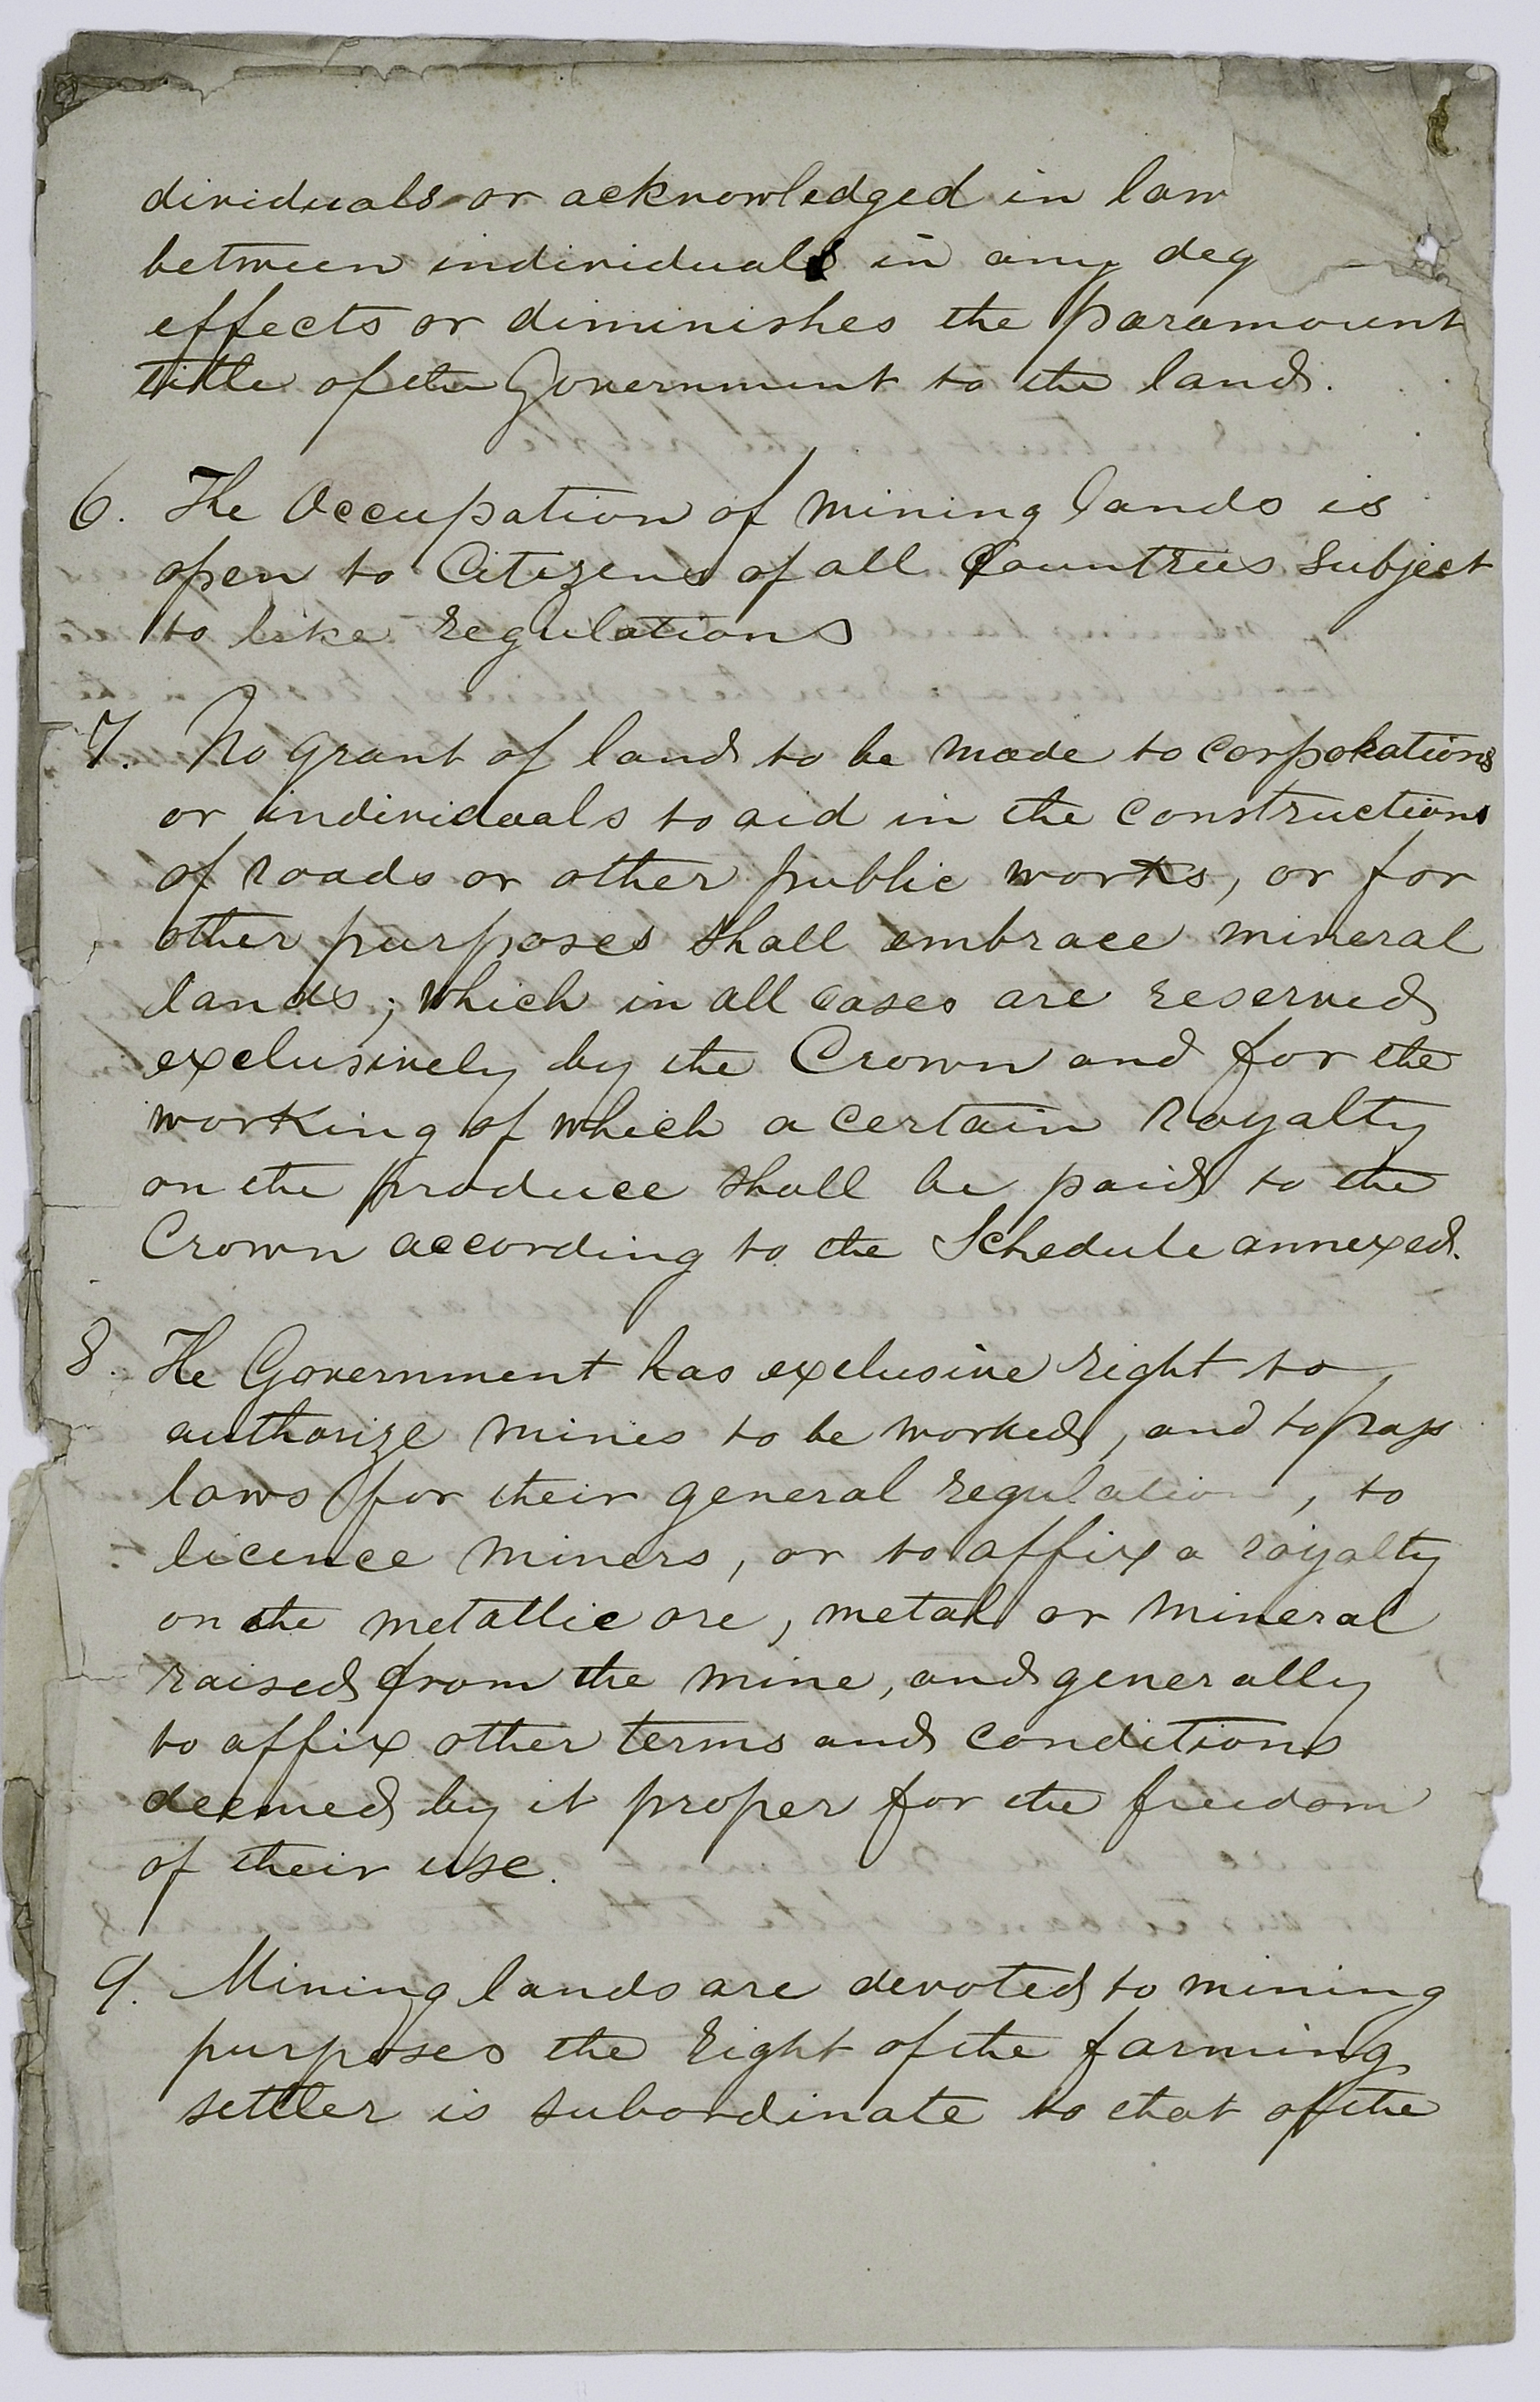 dividuals or acknowledged in law
between individuals in any deg
effects or diminishes the paramount
title of the Government to the land.
6. The Occupation of mining lands is
open to Citizens of all Countries subject
to like regulations
7. No grant of land to be made to corporations
or individuals to aid in the constructions
of roads or other public works, or for
other purposes shall embrace mineral
lands; which in all cases are reserved
exclusively by the Crown and for the
working of which a certain royalty
on the produce shall be paid to the
Crown according to the Schedule annexed.
8. The Government has exclusive right to
authorize mines to be worked, and to pass
laws for their general regulation, to
licence miners, or to affix a royalty
on the metallic ore, metal or mineral
raised from the mine, and generally
to affix other terms and conditions
deemed by it proper for the freedom
of their use.
9. Mining lands are devoted to mining
purposes the right of the farming
settler is subordinate to that of the